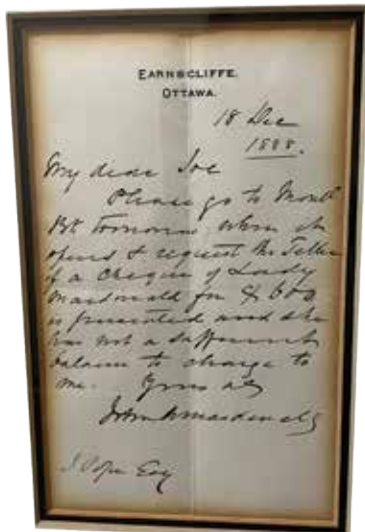 EARNSCLIFFE.
OTTAWA.
18 Dec
1888.
My dear Joe
Please go to Montl
Bk tomorrow when it
opens & request the Teller
if a cheque of Lady
Macdonald for $600
is presented and she
has not a sufficient
balance to charge to
me. Yours aly
John A Macdonald
J. Pope Esq